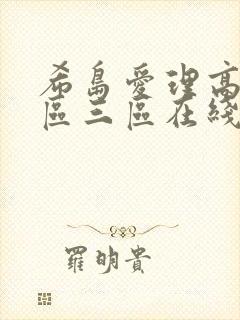 希島愛理高
區三區在綫
羅明貴